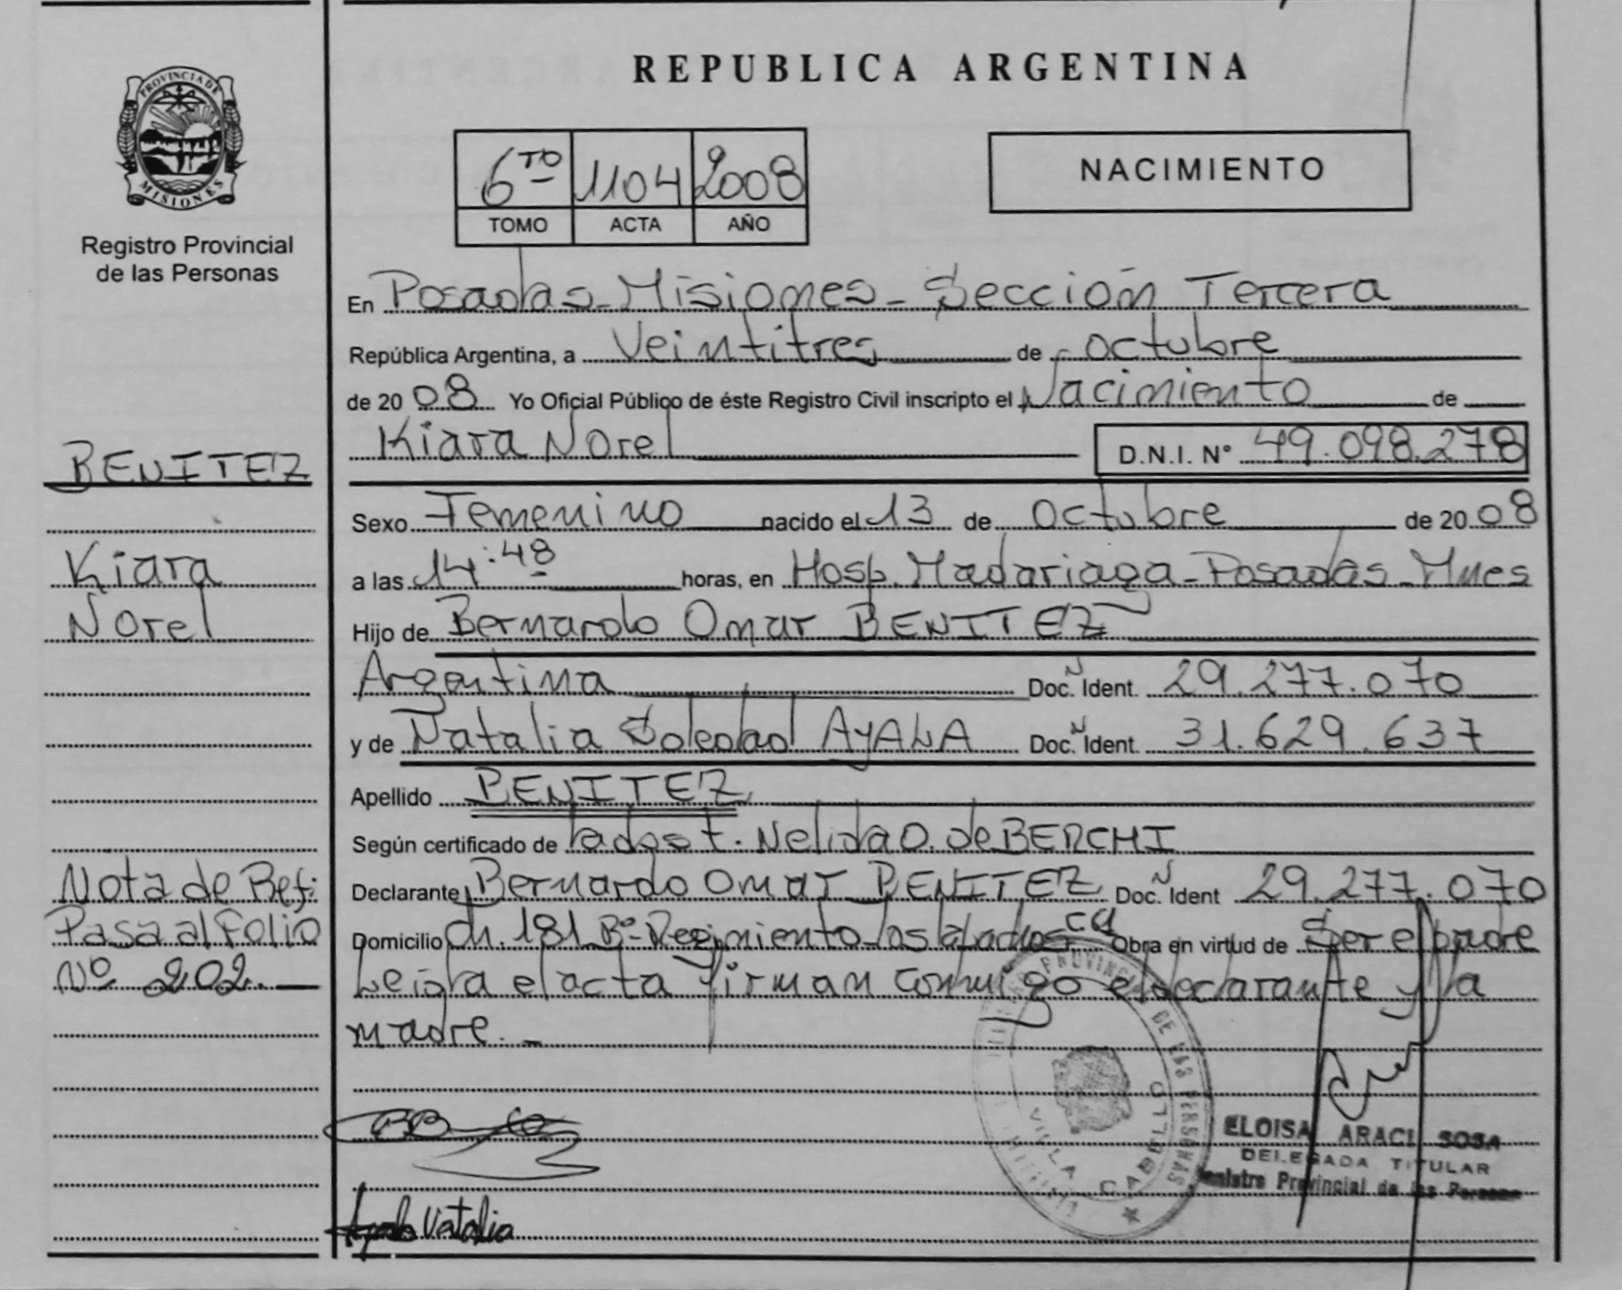 PROVINCIA DE
MISIONES
Registro Provincial
de las Personas
REPUBLICA ARGENTINA
6TO 1104 2008
TOMO ACTA AÑO
NACIMIENTO
En Posadas-Misiones-Sección Tercera
República Argentina, a Veintitres de octubre
de 2008 Yo Oficial Público de éste Registro Civil inscripto el Nacimiento de
Kiara Norel D.N.I. N° 49.098.278
BENITEZ
Sexo Femenino nacido el 13 de Octubre de 2008
Kiara
a las 14:48 horas, en Hosp. Madariaga-Posadas-Mnes
Norel
Hijo de Bernardo Omar BENITEZ
Argentina Doc. N Ident. 29.277.070
y de Natalia Soledad AYALA Doc. N Ident. 31.629.637
Apellido BENITEZ
Según certificado de Nelida O. de BERCHI
Nota de Ref:
Declarante Bernardo Omar BENITEZ Doc. N Ident 29.277.070
Pasa al Folio
Domicilio Ch. 181 B°- Obra en virtud de Ser el padre
Nº 202.-
Leida el acta firman conmigo el declarante y la
madre.-
PROVINCIAL DE LAS PERSONAS
VILLA CABELLO
ELOISA ARACI SOSA
DELEGADA TITULAR
Registro Provincial de las Personas
Ayala Natalia